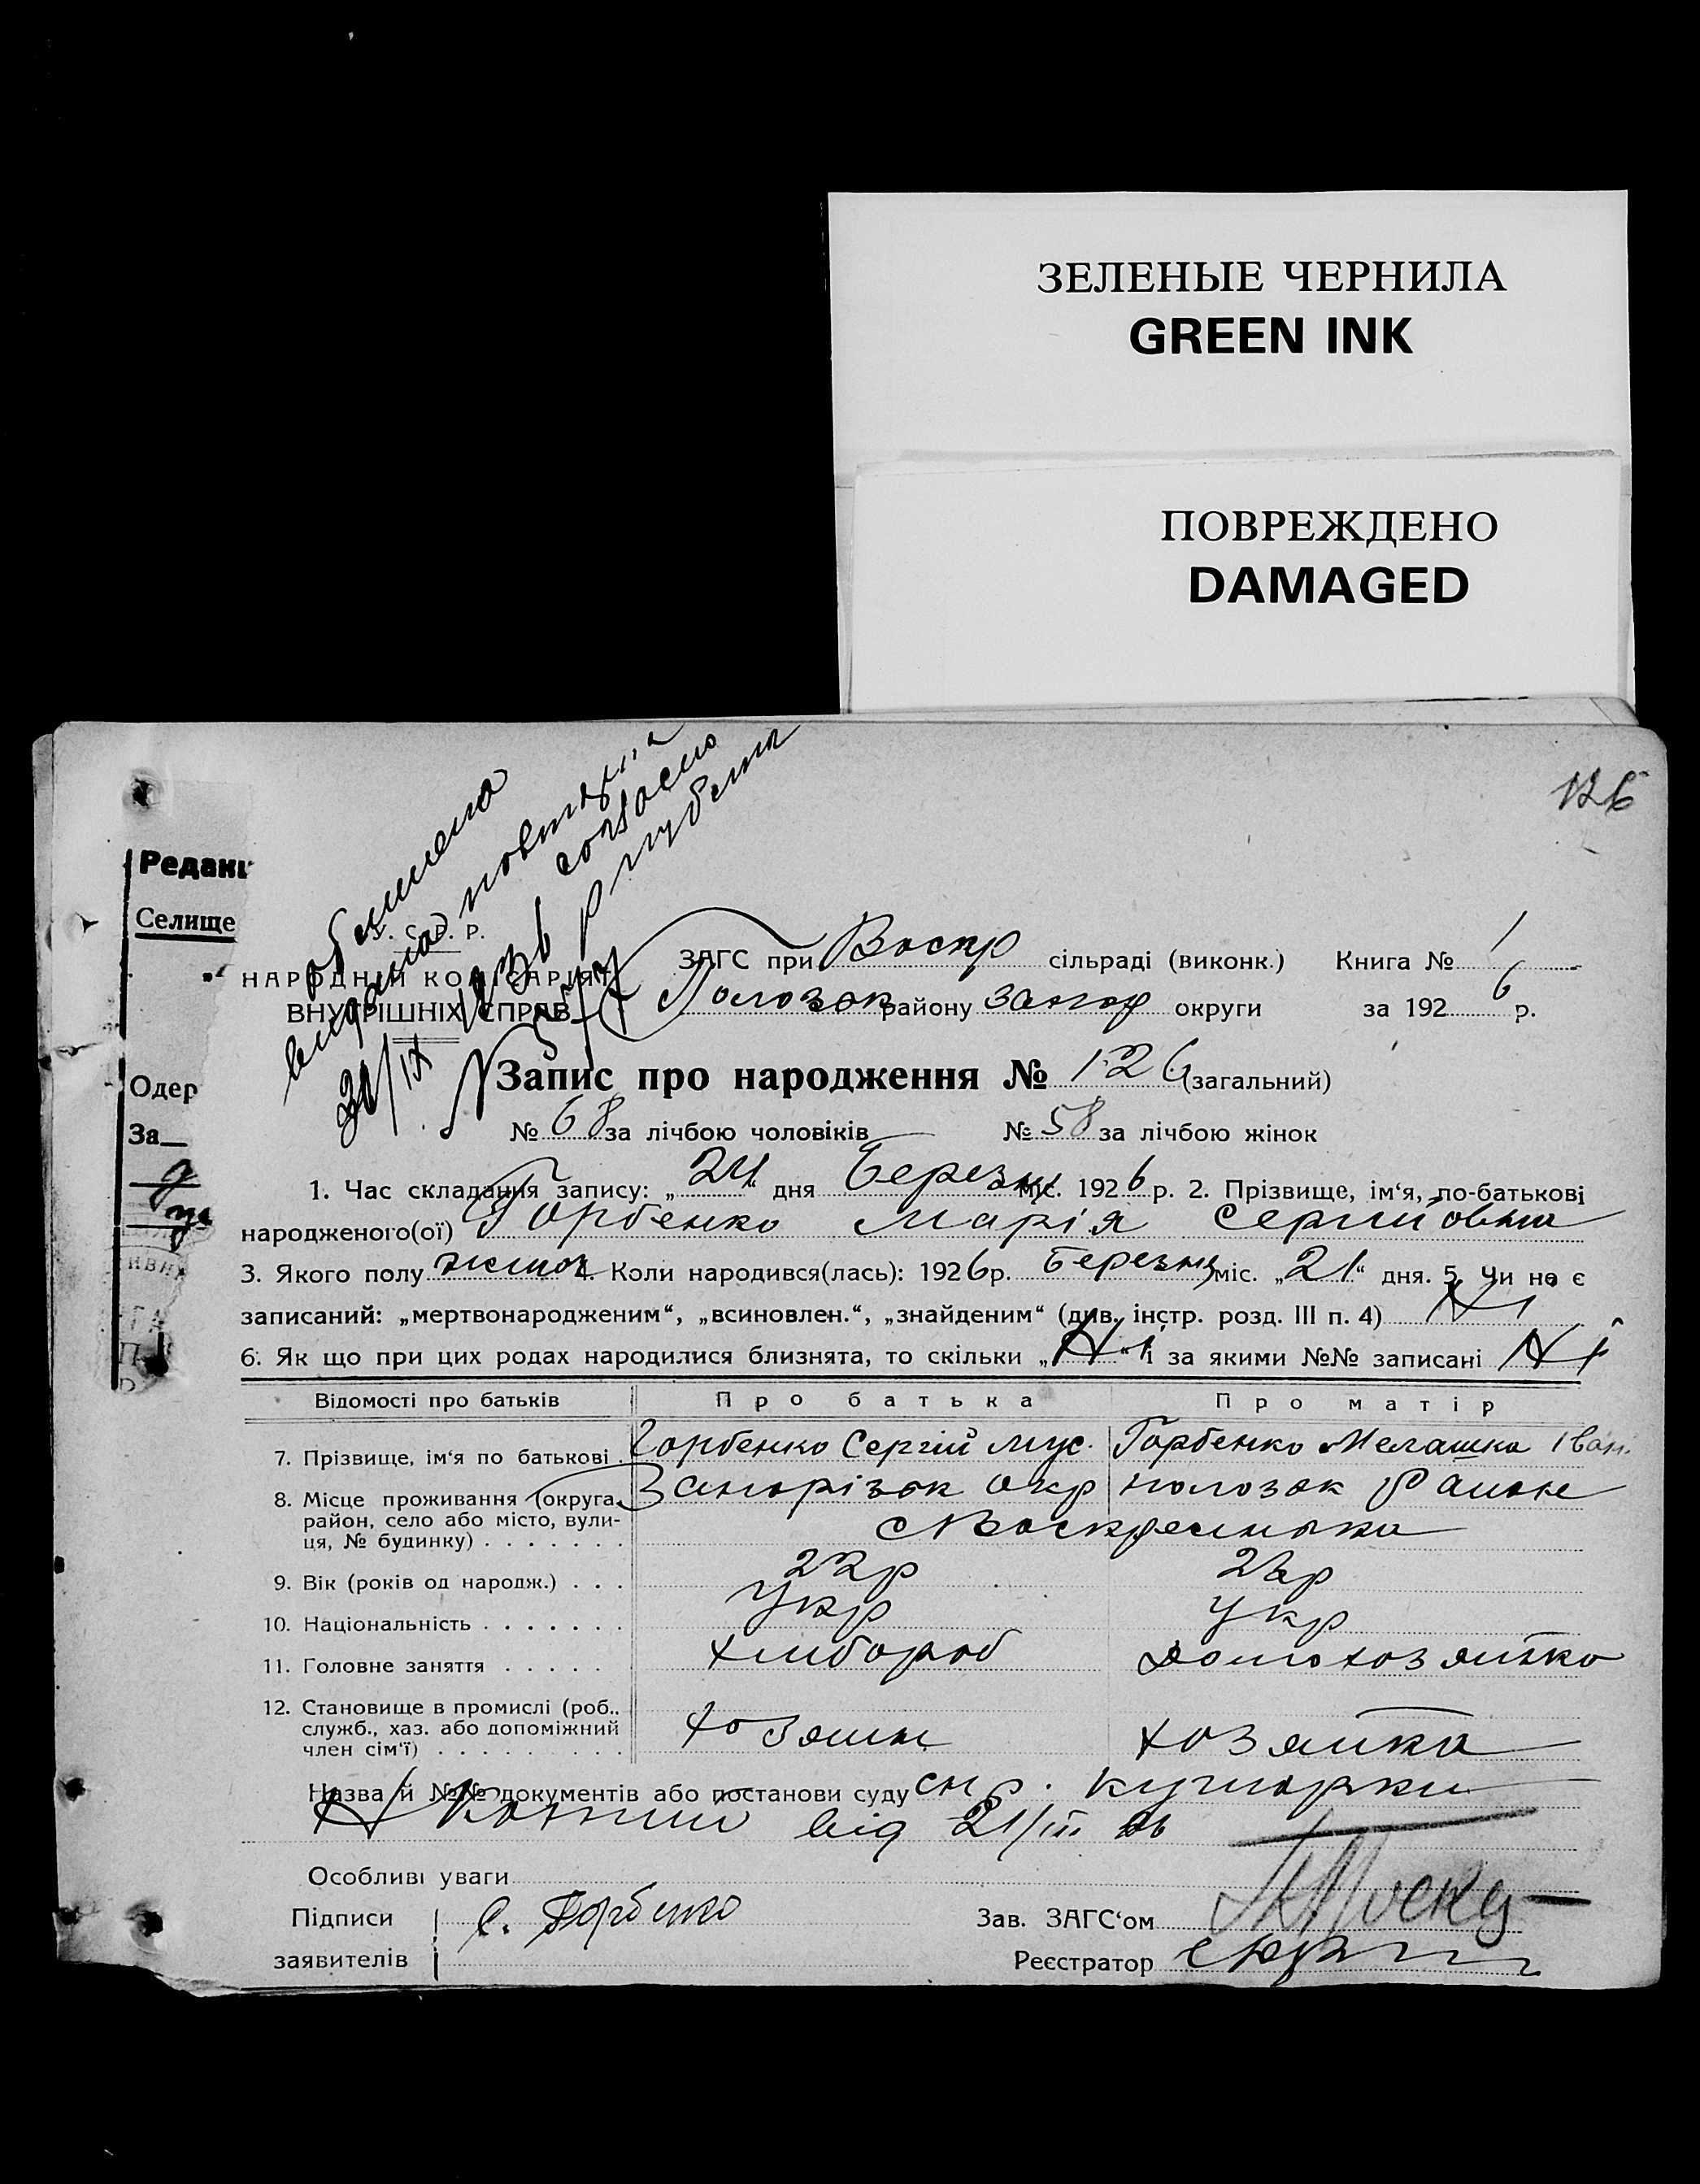 ЗЕЛЕНЫЕ ЧЕРНИЛА
GREEN INK
ПОВРЕЖДЕНО
DAMAGED
126
Редакц
Селище
Одер
За
У. С. Р. Р.
НАРОДНИЙ КОМІСАРІЯТ
ВНУТРІШНІХ СПРАВ
ЗАГС при Воскр сільраді (виконк.) Книга № 1
Полозок району Запор округи за 1926 р.
Запис про народження № 126 (загальний)
№ 68 за лічбою чоловіків № 58 за лічбою жінок
1. Час складання запису: „24“ дня Березня міс. 1926 р. 2. Прізвище, ім‘я, по-батькові
народженого(ої) Горбенко Марія Сергийовна
3. Якого полу жиноч 4. Коли народився(лась): 1926 р. Березня міс. „21“ дня. 5. Чи не є
записаний: „мертвонародженим“, „всиновлен.“, „знайденим“ (див. інстр. розд. III п. 4) Ні
6. Як що при цих родах народилися близнята, то скільки „Ні“ і за якими №№ записані Ні
Відомості про батьків Про батька Про матір
7. Прізвище, ім‘я по батькові Горбенко Сергій Мус. Горбенко Мелашка Іван.
8. Місце проживання (округа, Запорізок окр полозок Району
район, село або місто, вули- с Воскресенька
ця, № будинку)
9. Вік (років од народж.) 22р
10. Національність укр укр
11. Головне заняття хлибороб домохозяйка
12. Становище в промислі (роб., хозяин хозяйка
служб., хаз. або допоміжний
член сім‘ї)
Назва й №№ документів або постанови суду
від 21/III 26
Особливі уваги
Підписи С. Горбенко Зав. ЗАГС‘ом
заявителів Реєстратор